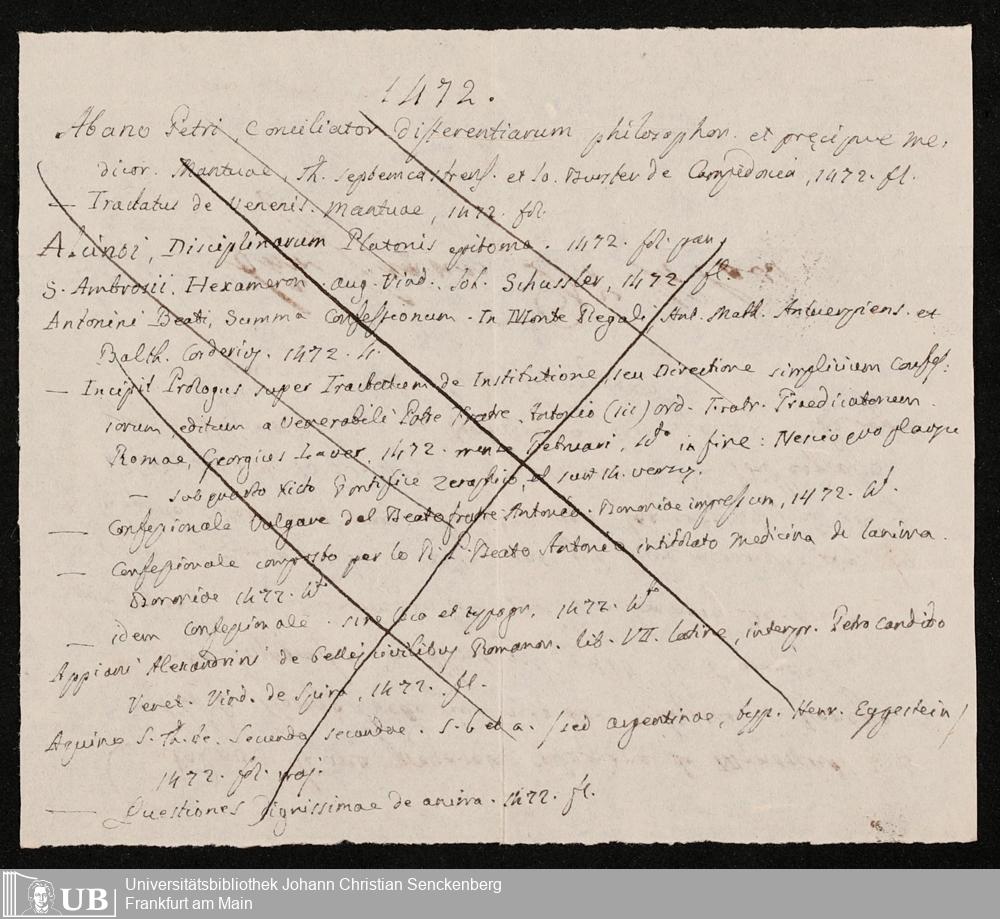 1472.
Abano Petri Conciliator differentiarum philosophor. et pręcipue me,
dicor. Mantuae, Th. Septemcastrens. et Jo. Burster de Campidonia, 1472. fl.
— Tractatus de Venenis. Mantuae, 1472. fol.
Alcinoi, Disciplinarum Platonis epitoma. 1472. fol. parv.
S. Ambrosii, Hexameron. aug. Vind. Joh. Schussler, 1472. fl.
Antonini Beati, Summa Confessionum. In Monte Regali, Ant. Math. Antwerpiens. et
Balth. Corderius. 1472. 4.
— Incipit Prologus super Tractatum de Institutione, seu Directione simplicium Confess:
iorum, editum a Venerabili Patre Fratre Antonio (sic) ord. Fratr. Praedicatorum.
Romae, Georgius Laver, 1472. mense Februari, 4to in fine: Nescio quo plausu
— sub quarto Xicto Pontifice
— Confessionale Volgare del Beato fratre Antonio. Bononiae impressum, 1472. 4t.
— Confessionale composto per lo R. P. Beato Antonio intitolato Medicina de lanima.
Bononiae 1472. 4to
— idem Confessionale. sine loco et typogr. 1472. 4to
Appiani Alexandrini de bellis civilibus Romanor. lib. VII. latine, interpr. Petro Candido
Venet. Vind. de Spira, 1472. fl.
Aquino S. Th. de. Secunda secundae. s. l. et a. (sed argentinae, typ. Henr. Eggestein)
1472. fol. maj.
— Questiones dignissimae de anima. 1472. fl.
UB
Universitätsbibliothek Johann Christian Senckenberg
Frankfurt am Main